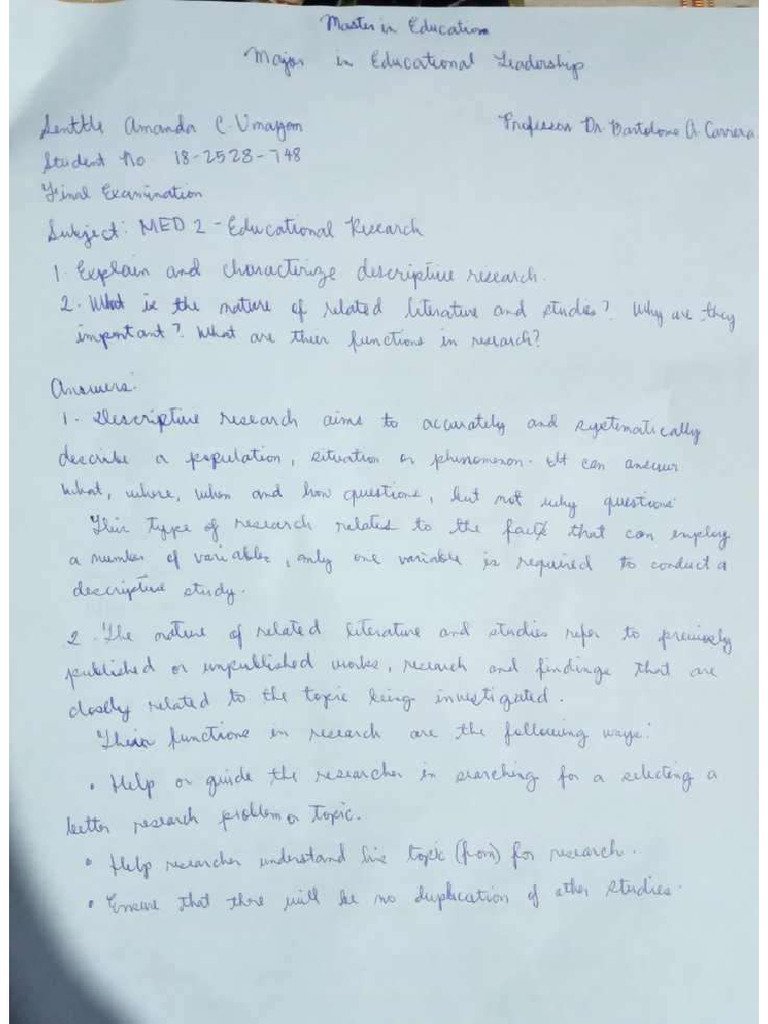 Master in Education
Major in Educational Leadership
Amanda C. Professor Dr. Bartolome A. Carrera
Student No 18-2528-748
Final Examination
Subject: MED 2 - Educational Research
1. Explain and characterize descriptive research.
2. What is the nature of related literature and studies? Why are they
important? What are their functions in research?
Answers:
1 - Descriptive research aims to accurately and systematically
describe a population, situation or phenomenon. It can answer
what, where, when and how questions, but not why questions
This type of research relates to the facts that can employ
a number of variables, only one variable is required to conduct a
descriptive study.
2. The nature of related literature and studies refer to previously
published or unpublished works, research and findings that are
closely related to the topic being investigated.
Their functions in research are the following ways:
• Help or guide the researcher in searching for a selecting a
better research problem or topic.
• Help researcher understand his topic (from) for research.
• Ensure that there will be no duplication of other studies.